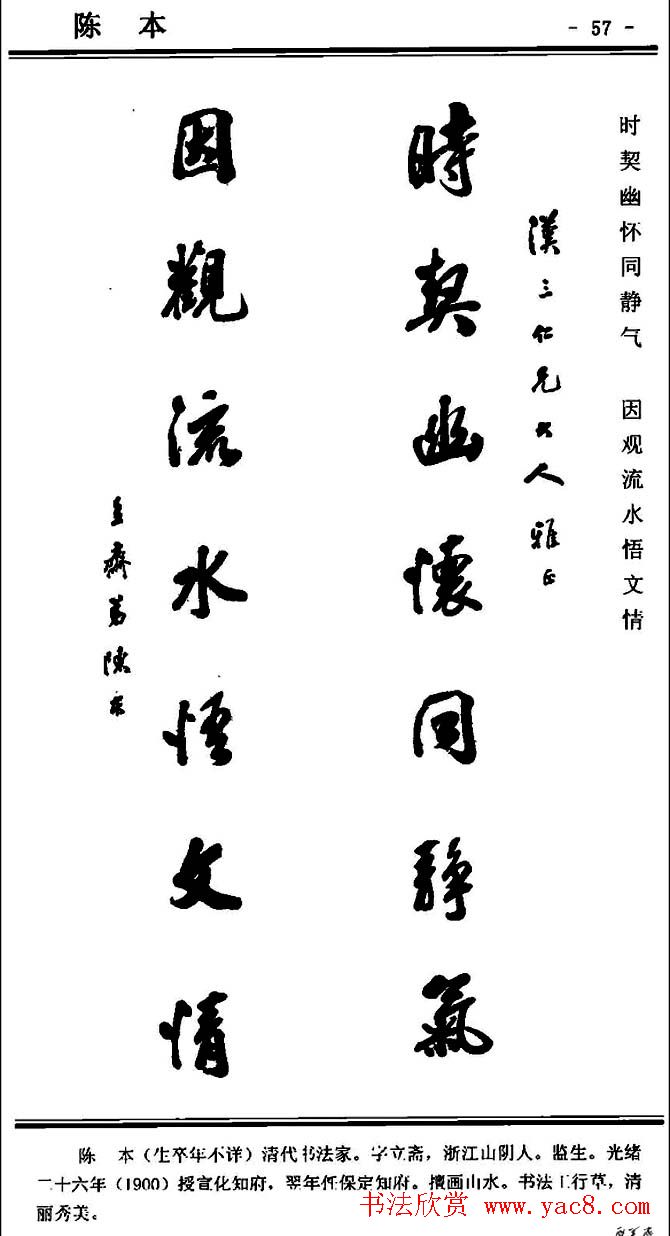 陈 本
- 57 -
时契幽怀同静气 因观流水悟文情
漢三仁兄大人雅正
時契幽懷同靜氣
因觀流水悟文情
立齋弟陳本
陈 本（生卒年不详）清代书法家。字立斋，浙江山阴人。监生。光绪
二十六年（1900）授宣化知府，翌年任保定知府。擅画山水。书法工行草，清
丽秀美。
书法欣赏 www.yac8.com